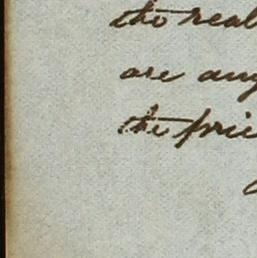 the real
are any
the frie